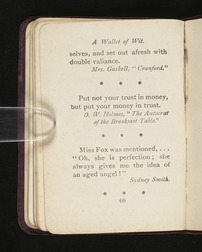 A Wallet of Wit.
selves, and set out afresh with
double valiance.
Mrs. Gaskell, "Cranford."
* * *
Put not your trust in money,
but put your money in trust.
O. W. Holmes, "The Autocrat
of the Breakfast Table."
* * *
Miss Fox was mentioned, . . .
"Oh, she is perfection; she
always gives me the idea of
an aged angel!"
Sydney Smith.
* * *